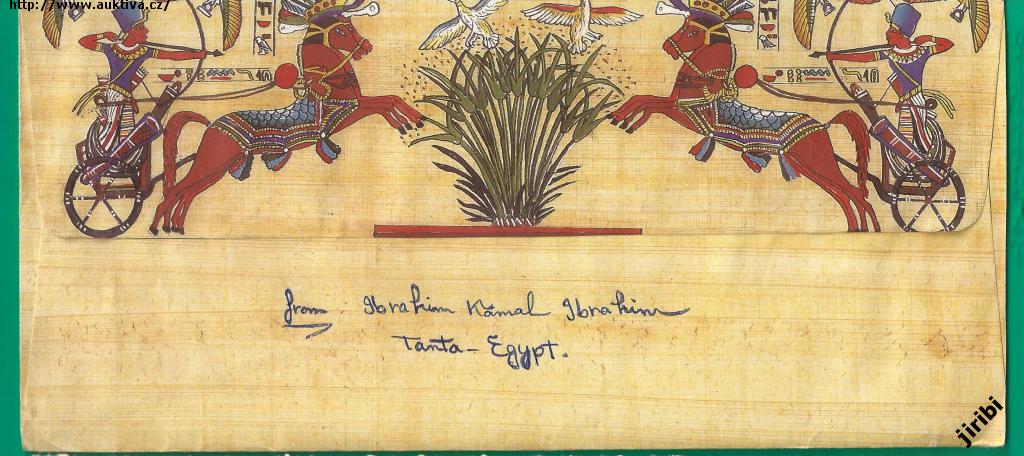 http://www.auktiva.cz/
from Ibrahim Kamal Ibrahim
Tanta - Egypt.
jiribi